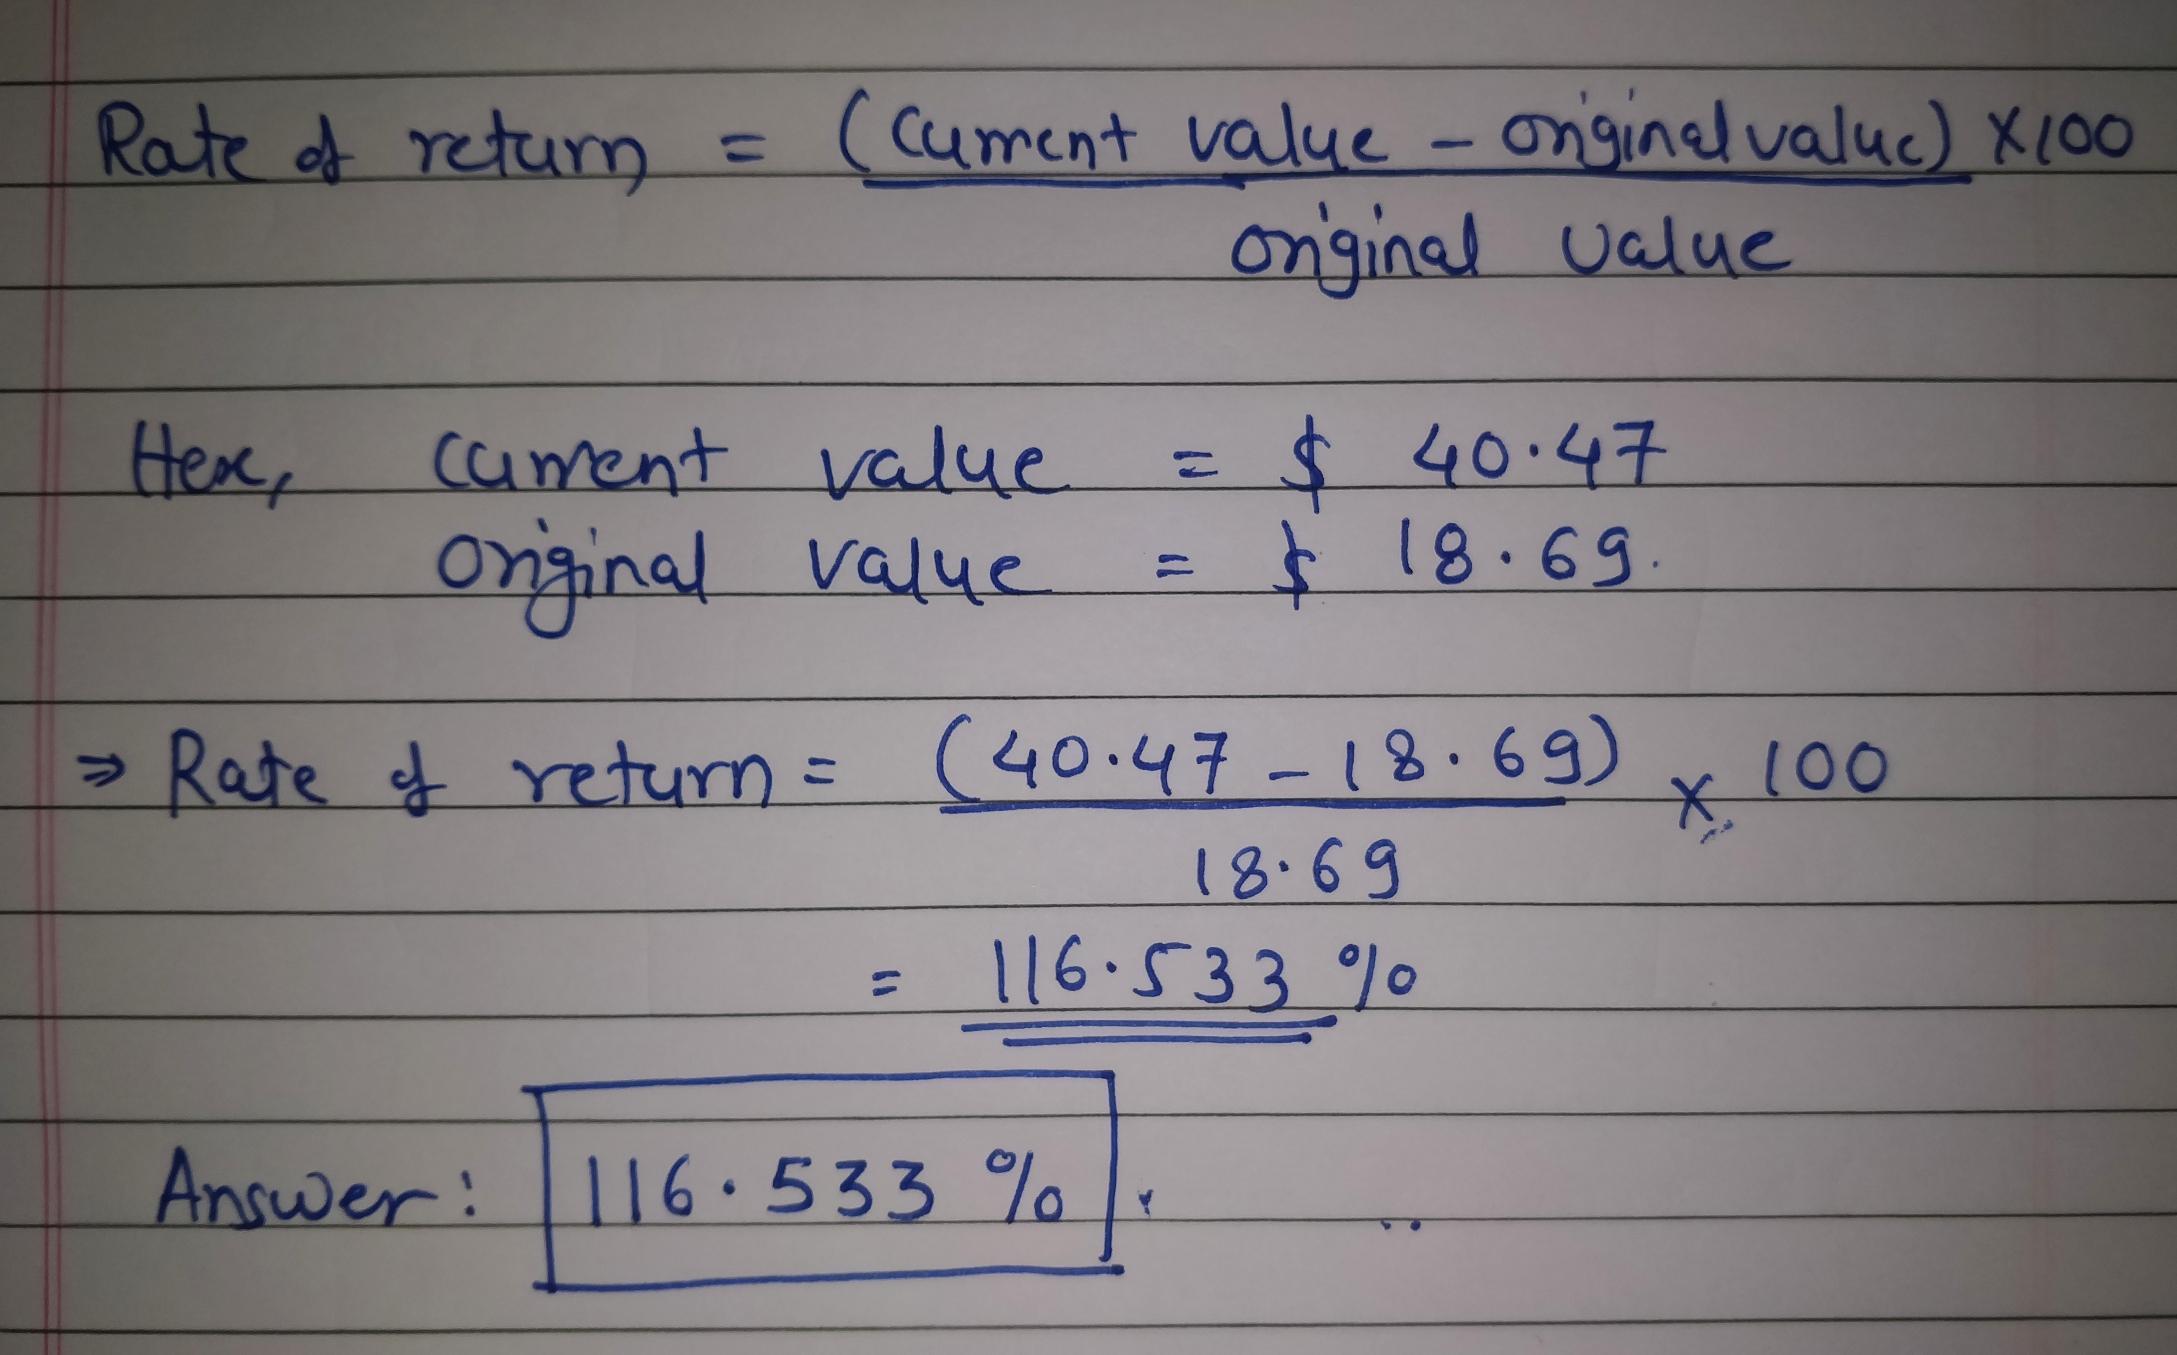 Rate of return = (Current value - original value) X100
original value
Here, current value = $ 40.47
original value = $ 18.69.
⇒ Rate of return = (40.47 - 18.69) x 100
18.69
= 116.533 %
Answer: 116.533 %